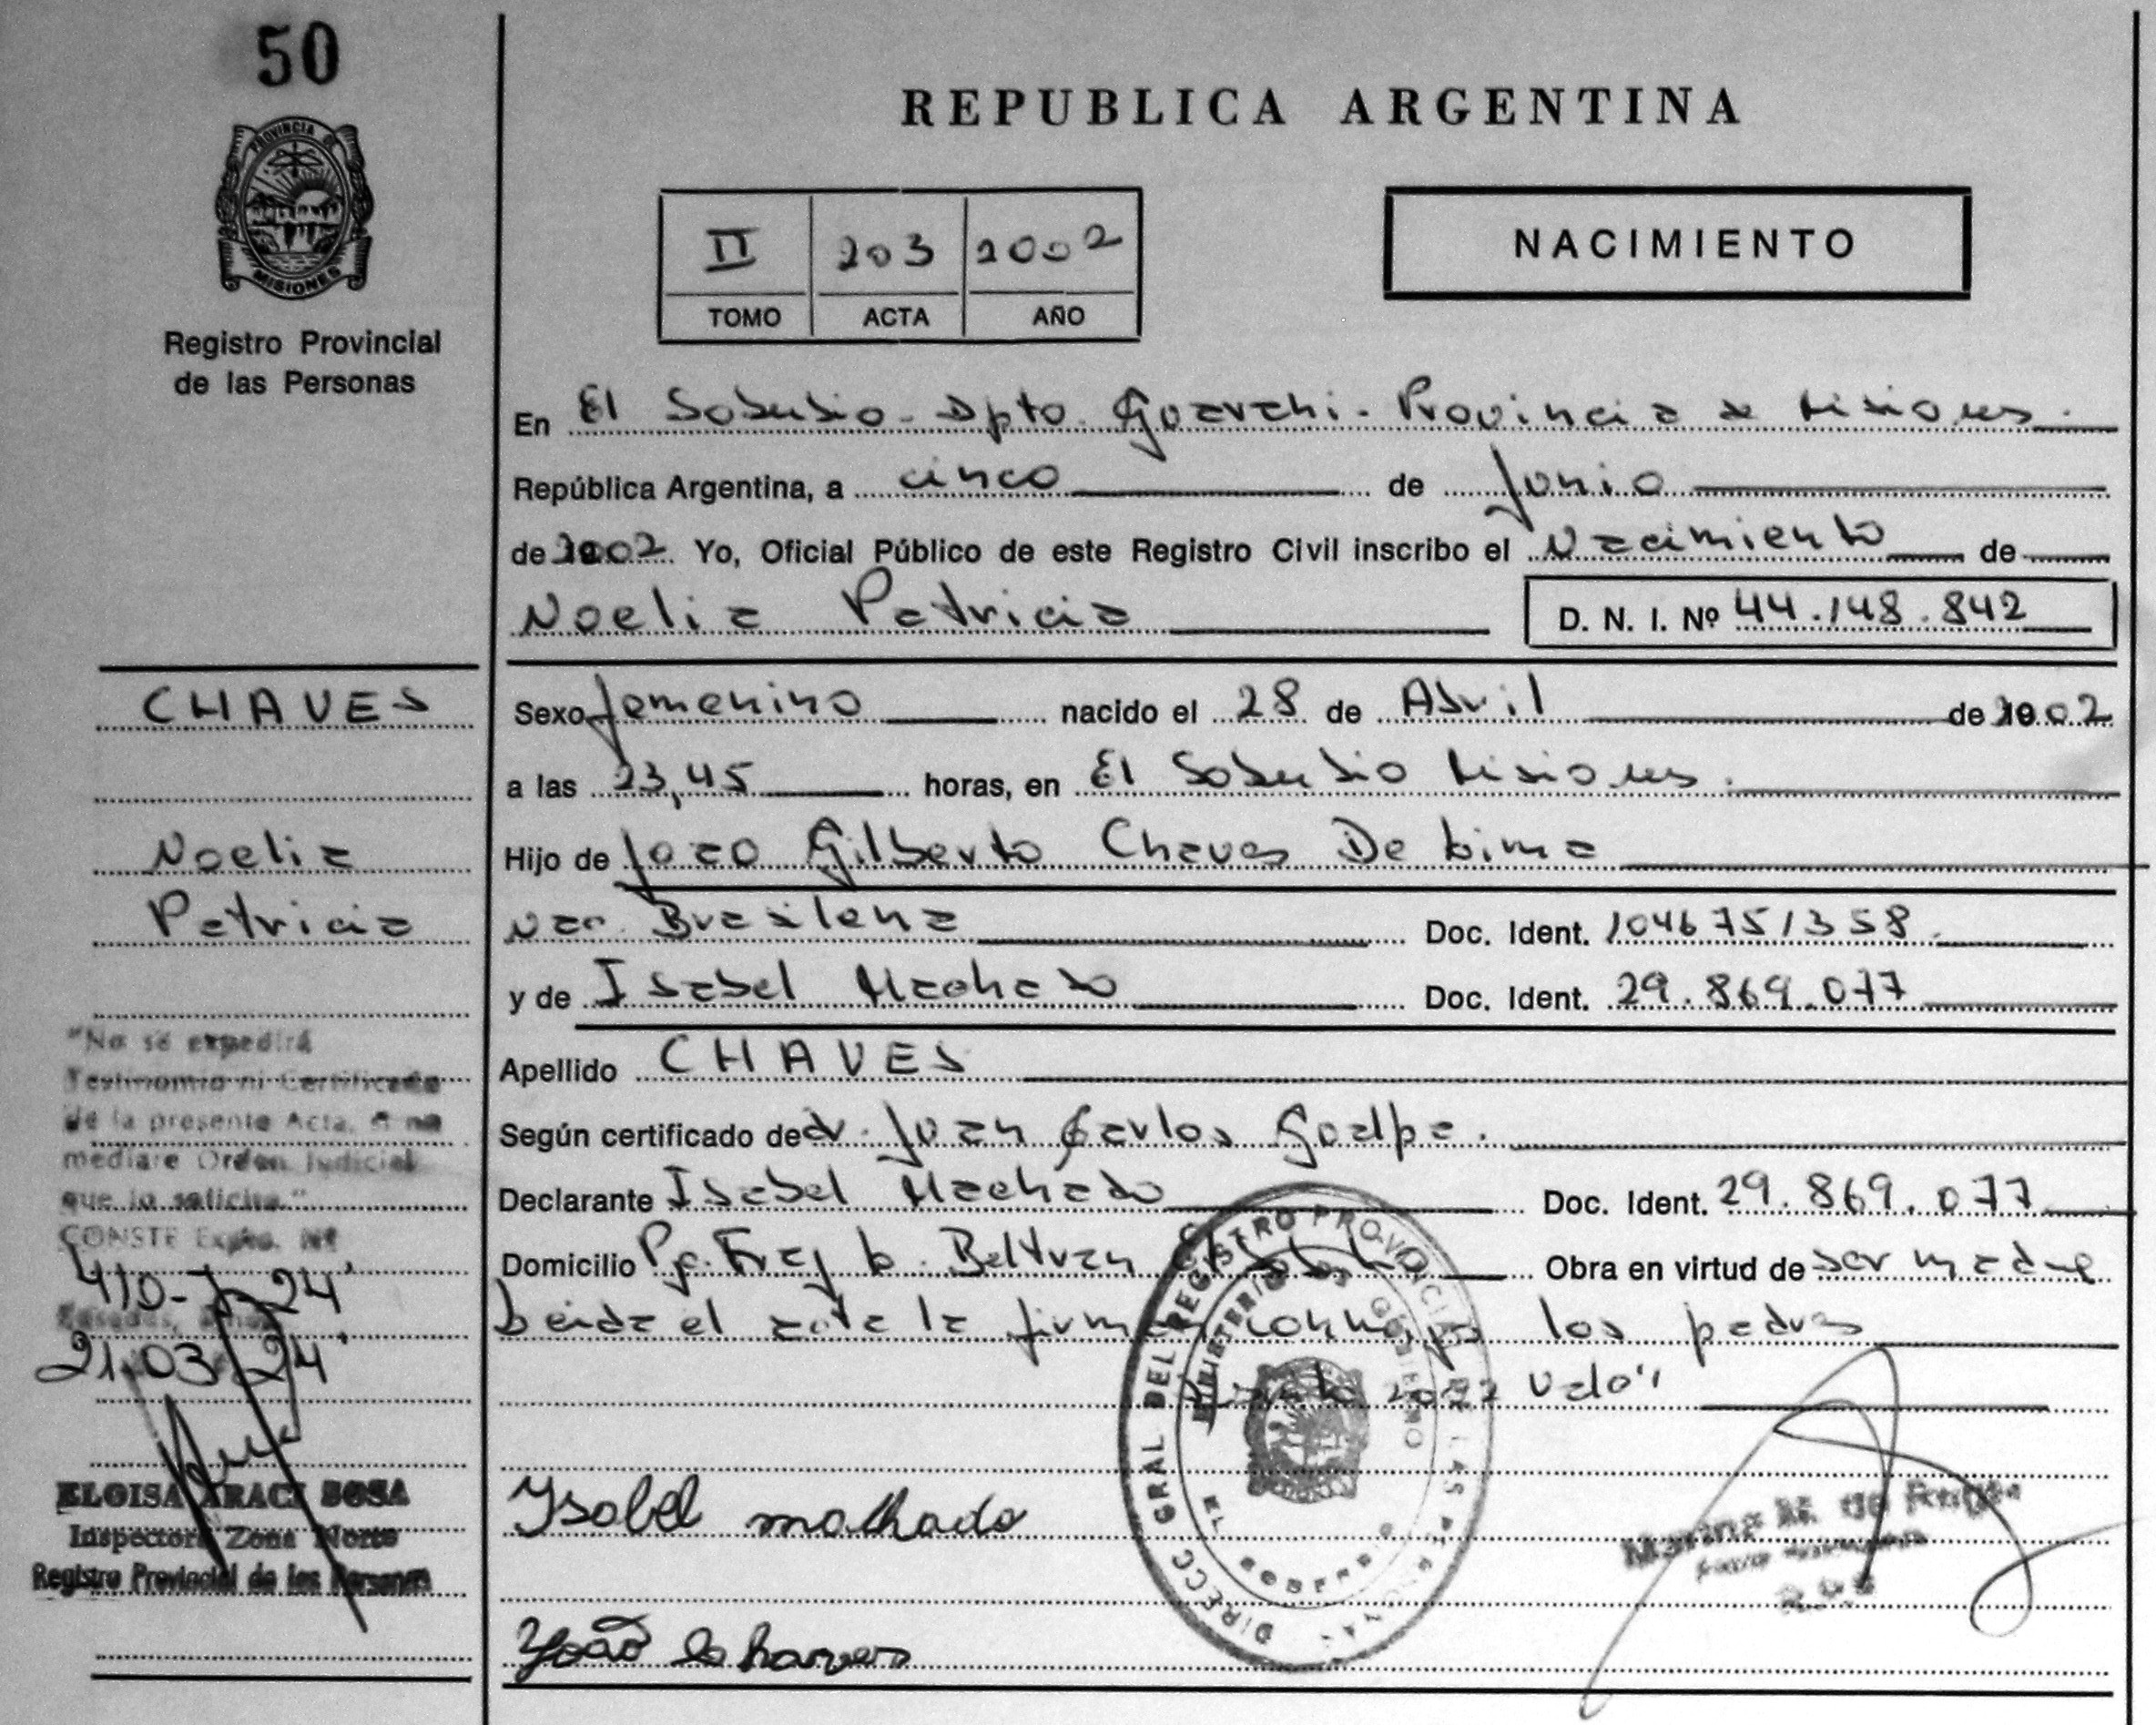 50
PROVINCIA DE
MISIONES
Registro Provincial
de las Personas
REPUBLICA ARGENTINA
II 203 2002
TOMO ACTA AÑO
NACIMIENTO
En El Soberbio - Dpto. Guarani - Provincia de Misiones.
República Argentina, a cinco de Junio
de 2002 Yo, Oficial Público de este Registro Civil inscribo el Nacimiento de
Noelia Patricia
D. N. I. Nº 44.148.842
CHAVES
Noelia
Patricia
Sexo femenino nacido el 28 de Abril de 2002
a las 23,45 horas, en El Soberbio Misiones.
Hijo de Joao Gilberto Chaves De Lima
Nac. Brasilena Doc. Ident. 1046751358.
y de Isabel Machado Doc. Ident. 29.869.077
Apellido CHAVES
Según certificado de dr. Juan Carlos Goalpa.
Declarante Isabel Machado Doc. Ident. 29.869.077
Domicilio Pje. Fray L. Beltran El Soberbio Obra en virtud de ser madre
Leida el acta la firman conmigo los padres
2002 Vale
"No se expedirá
Testimonio ni Certificado
de la presente Acta, si no
mediare Orden Judicial
que lo solicite."
CONSTE Expte. Nº
410- 24
Posadas,
21.03 24
ELOISA ARACI SOSA
Inspectora Zona Norte
Registro Provincial de las Personas
DIRECC GRAL DEL REGISTRO PROVINCIAL DE LAS PERSONAS
MINISTERIO DE GOBIERNO
Ysabel machado
João G chaves
Marina M. de